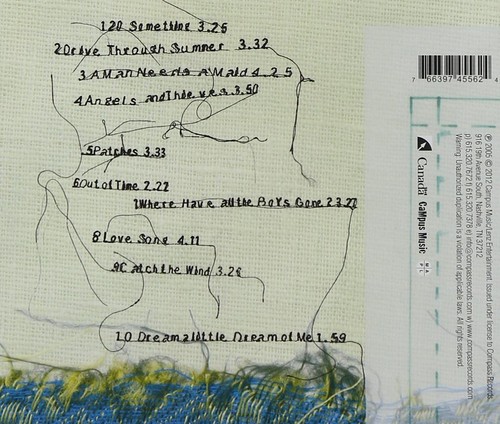 1 20 Something 3.25
2 Drive Through Summer 3.32
3 A Man Needs A Maid 4.25
4 Angels and Thieves 3.50
5 Patches 3.33
6 Out of Time 2.22
7 Where Have all the Boys Gone 2 3.27
8 Love Song 4.11
9 Catch the Wind 3.26
10 Dream a little Dream of Me 1.59
7 66397 45562 4
Canada CaMpus Music
℗ 2005 © 2012 Campus Music/Lenz Entertainment. Issued under license to Compass Records.
916 19th Avenue South, Nashville, TN 37212
p) 615.320.7672 f) 615.320.7378 e) info@compassrecords.com w) www.compassrecords.com
Warning: Unauthorized duplication is a violation of applicable laws. All rights reserved.